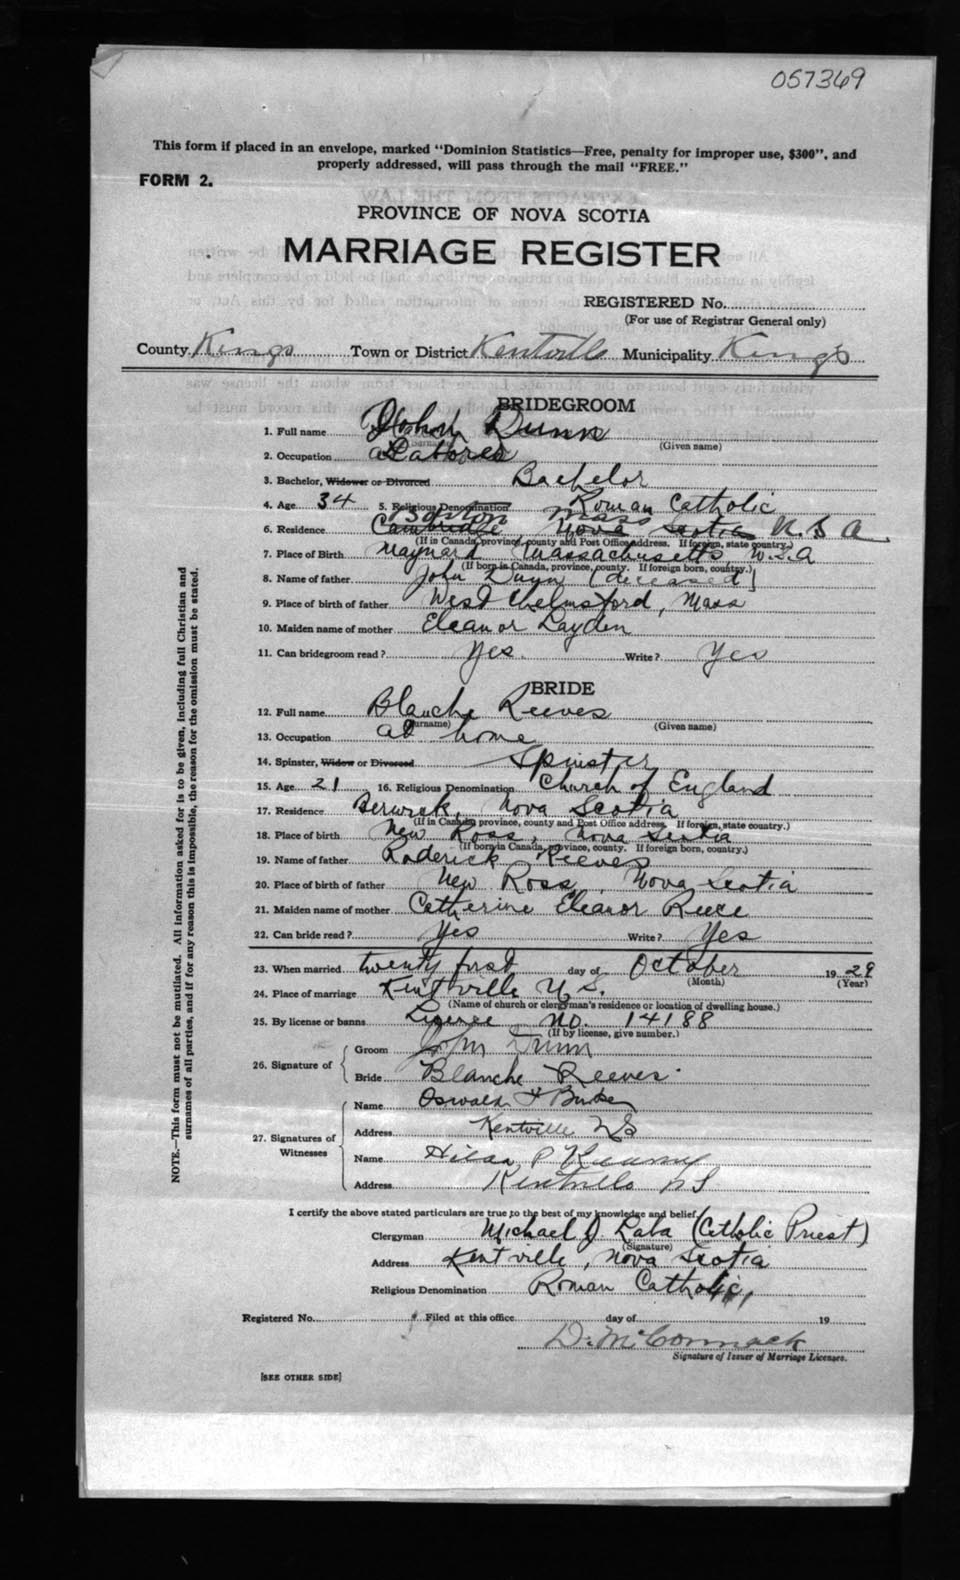 057369
This form if placed in an envelope, marked "Dominion Statistics—Free, penalty for improper use, $300", and
properly addressed, will pass through the mail "FREE."
FORM 2.
PROVINCE OF NOVA SCOTIA
MARRIAGE REGISTER
REGISTERED No.
(For use of Registrar General only)
County Kings Town or District Kentville Municipality Kings
BRIDEGROOM
1. Full name John Dunn
(Given name)
2. Occupation Laborer
3. Bachelor, Widower or Divorced Bachelor
4. Age 34 5. Religious Denomination Roman Catholic
Boston Mass
6. Residence Cambridge Nova Scotia U.S.A
(If in Canada, province, county and Post Office address. If foreign, state country.)
7. Place of Birth Maynard Massachusetts, U.S.A
(If born in Canada, province, county. If foreign born, country.)
8. Name of father John Dunn [deceased]
9. Place of birth of father West Chelmsford, Mass
10. Maiden name of mother Eleanor Layden
11. Can bridegroom read? Yes. Write? Yes
BRIDE
12. Full name Blanche Reeves
(Surname) (Given name)
13. Occupation at home
14. Spinster, Widow or Divorced Spinster
15. Age 21 16. Religious Denomination Church of England
17. Residence Berwick, Nova Scotia
(If in Canada, province, county and Post Office address. If foreign, state country.)
18. Place of birth New Ross, Nova Scotia
(If born in Canada, province, county. If foreign born, country.)
19. Name of father Roderick Reeves
20. Place of birth of father New Ross, Nova Scotia
21. Maiden name of mother Catherine Eleanor Reece
22. Can bride read? Yes Write? Yes
23. When married twenty first day of October 1929
(Month) (Year)
24. Place of marriage Kentville N.S.
(Name of church or clergyman's residence or location of dwelling house.)
25. By license or banns License No. 14188
(If by license, give number.)
26. Signature of
Groom John Dunn
Bride Blanche Reeves
27. Signatures of Witnesses
Name Oswald
Address Kentville NS
Name
Address Kentville NS
I certify the above stated particulars are true to the best of my knowledge and belief.
Clergyman Michael J. Laba (Catholic Priest)
(Signature)
Address Kentville, Nova Scotia
Religious Denomination Roman Catholic
Registered No. Filed at this office day of 19
D. McCormack
Signature of Issuer of Marriage Licenses.
[SEE OTHER SIDE]
NOTE.—This form must not be mutilated. All information asked for is to be given, including full Christian and
surnames of all parties, and if for any reason this is impossible, the reason for the omission must be stated.